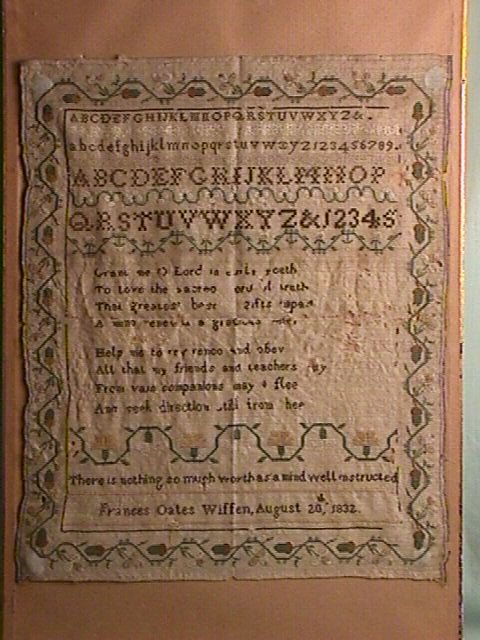 ABCDEFGHIJKLMNOPQRSTUVWXYZ&.
abcdefghijklmnopqrstuvwxyz123456789.
ABCDEFGHIJKLMNOP
QRSTUVWXYZ&12345
Grant me O Lord in
To love the sacred
That greatest best gifts
A is a gracious
Help me to and obey
All that my friends and teachers
From vain companions may flee
And seek direction still from
There is nothing so much worth as a mind well instructed
Frances Oates Wiffen, August 20, 1832.